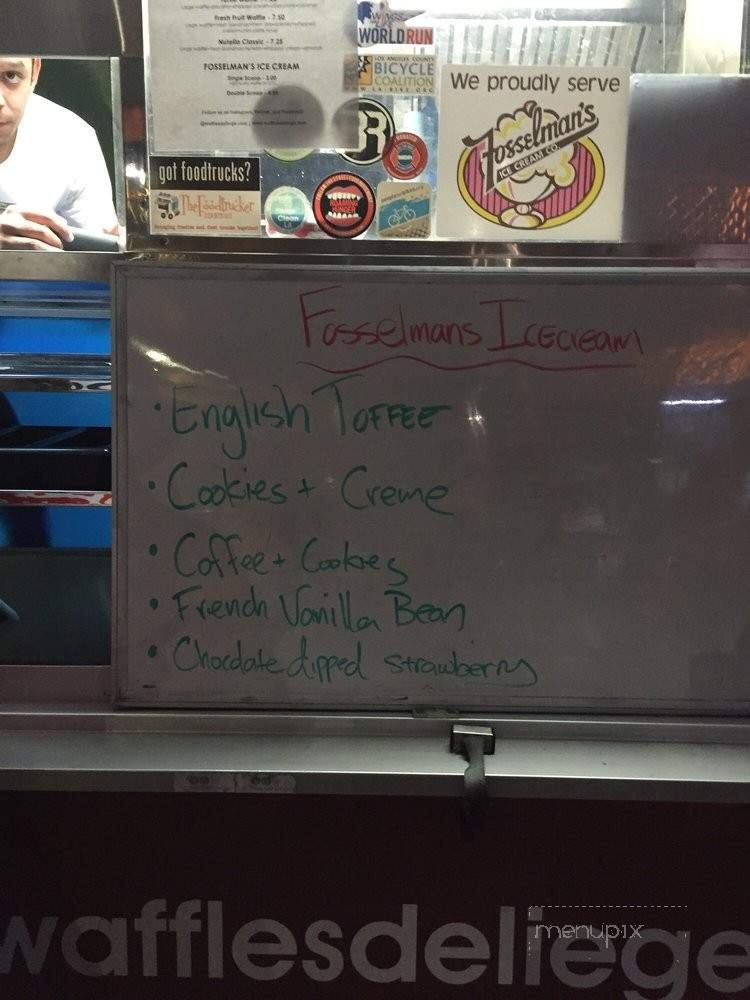 Fresh Fruit Waffle - 7.50
Nutella Classic - 7.25
FOSSELMAN'S ICE CREAM
Single Scoop - 3.00
Double Scoop -
WINGS
WORLD RUN
LOS ANGELES COUNTY
BICYCLE
COALITION
WWW.LA-BIKE.ORG
We proudly serve
Fosselman's
ICE CREAM CO.
got foodtrucks?
TheFoodtrucker
Clean
LA
ROAMING
HUNGER
Fosselmans Icecream
• English Toffee
• Cookies + Creme
• Coffee + Cookies
• French Vanilla Bean
• Chocolate dipped strawberry
wafflesdeliege
menupix